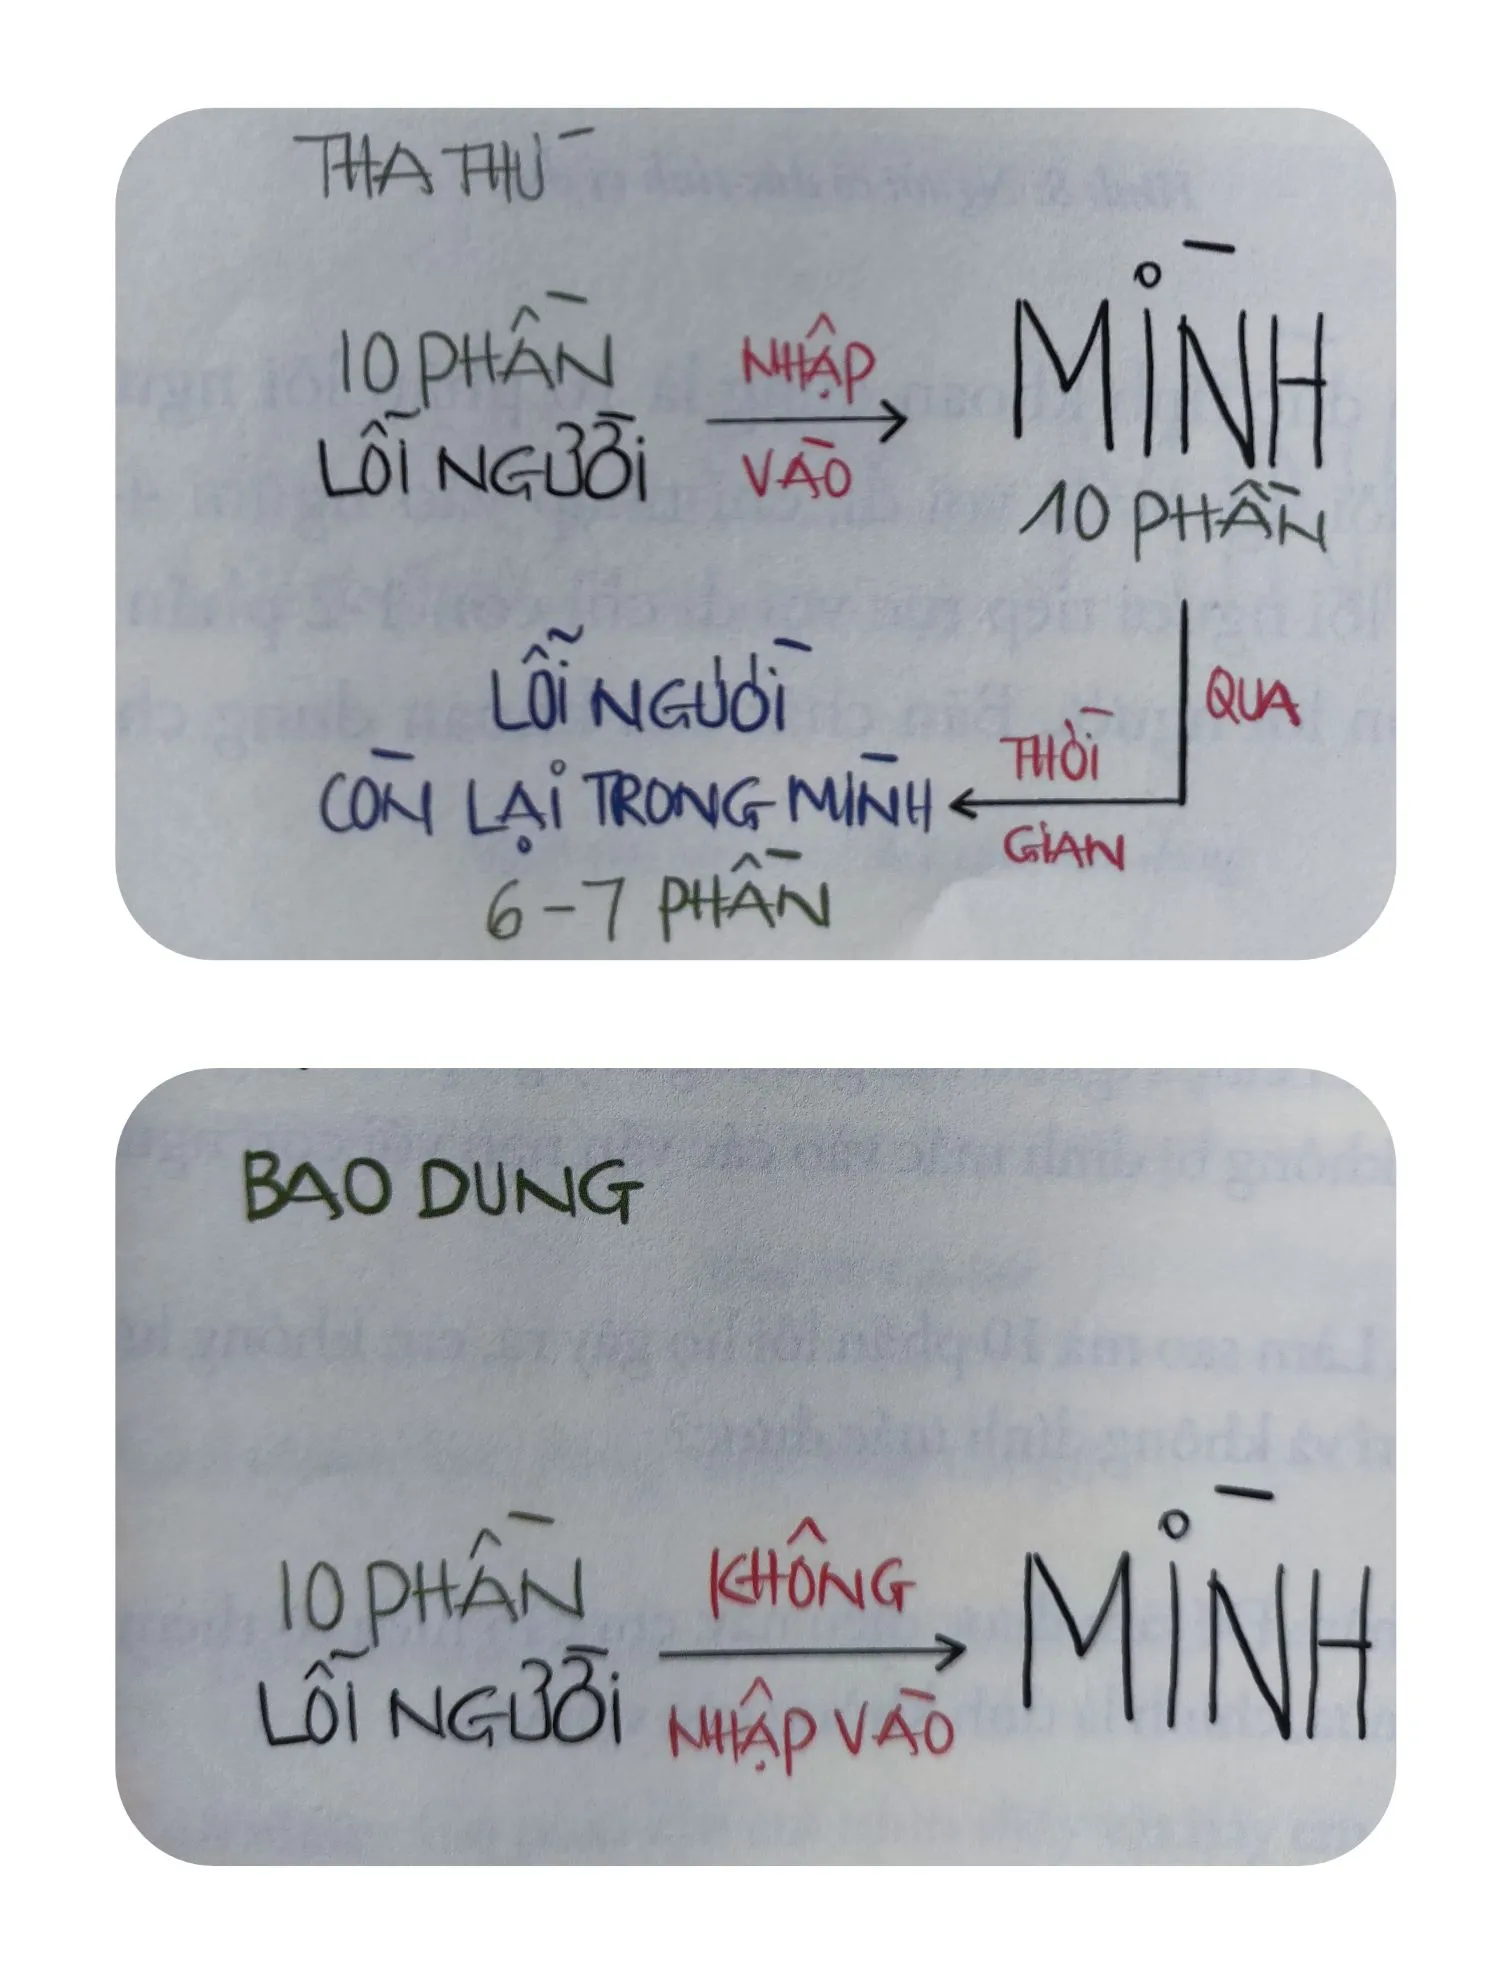 THA THỨ
10 PHẦN
LỖI NGƯỜI
NHẬP
VÀO
MÌNH
10 PHẦN
QUA
THỜI
GIAN
LỖI NGƯỜI
CÒN LẠI TRONG MÌNH
6-7 PHẦN
BAO DUNG
10 PHẦN
LỖI NGƯỜI
KHÔNG
NHẬP VÀO
MÌNH